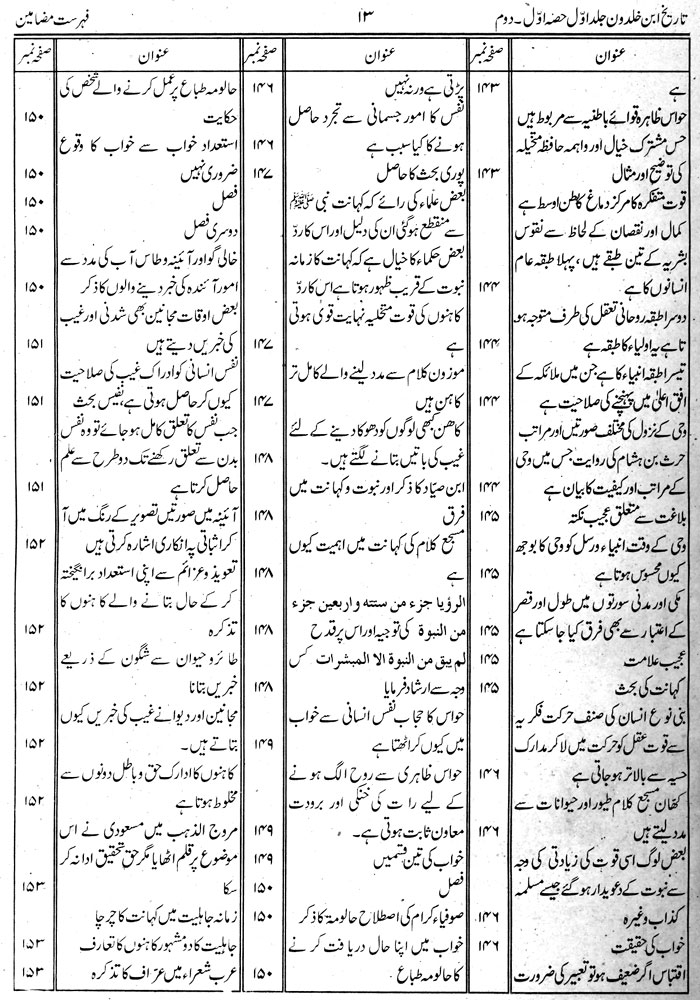 تاریخ ابن خلدون جلد اوّل حصہ اوّل۔ دوم
۱۳
فہرست مضامین
عنوان
صفحہ نمبر
ہے
۱۴۳
حواس ظاہرہ قوائے باطنیہ سے مربوط ہیں
حس مشترک خیال اور واہمہ حافظہ متخیلہ
کی توضیح اور مثال
۱۴۳
قوت متفکرہ کا مرکز دماغ کا بطن اوسط ہے
کمال اور نقصان کے لحاظ سے نفوس
بشریہ کے تین طبقے ہیں، پہلا طبقہ عام
انسانوں کا ہے
۱۴۴
دوسرا طبقہ روحانی تعقل کی طرف متوجہ ہو
تا ہے یہ اولیاء کا طبقہ ہے
۱۴۴
تیسرا طبقہ انبیاء کا ہے جن میں ملائکہ کے
افق اعلیٰ میں پہنچنے کی صلاحیت ہے
۱۴۴
وحی کے نزول کی مختلف صورتیں اور مراتب
حرث بن ہشام کی روایت جس میں وحی
کے مراتب اور کیفیت کا بیان ہے
۱۴۴
بلاغت سے متعلق عجیب نکتہ
۱۴۵
وحی کے وقت انبیاء و رسل کو وحی کا بوجھ
کیوں محسوس ہوتا ہے
۱۴۵
مکی اور مدنی سورتوں میں طول اور قصر
کے اعتبار سے بھی فرق کیا جا سکتا ہے
۱۴۵
عجیب علامت
۱۴۵
کہانت کی بحث
۱۴۵
بنی نوع انسان کی صنف حرکت فکریہ
سے قوت عقل کو حرکت میں لا کر مدارک
حسیہ سے بالاتر ہو جاتی ہے
۱۴۶
کھان مسجع کلام طیور اور حیوانات سے
مدد لیتے ہیں
۱۴۶
بعض لوگ اسی قوت کی زیادتی کی وجہ
سے نبوت کے دعویدار ہو گئے جیسے مسلمہ
کذاب وغیرہ
۱۴۶
خواب کی حقیقت
۱۴۶
اقتباس اگر ضعیف ہو تو تعبیر کی ضرورت
عنوان
صفحہ نمبر
پڑتی ہے ورنہ نہیں
۱۴۶
نفس کا امور جسمانی سے تجرد حاصل
ہونے کا کیا سبب ہے
۱۴۶
پوری بحث کا حاصل
۱۴۷
بعض علماء کی رائے کہ کہانت نبی ﷺ
سے منقطع ہو گئی ان کی دلیل اور اس کا ردّ
بعض حکماء کا خیال ہے کہ کہانت کا زمانہ
نبوت کے قریب ظہور ہوتا ہے اس کا ردّ
کاہنوں کی قوت متخلیہ نہایت قوی ہوتی
ہے
۱۴۷
موزون کلام سے مدد لینے والے کامل تر
کاہن ہیں
۱۴۷
کاھن کبھی لوگوں کو دھوکا دینے کے لئے
غیب کی باتیں بتانے لگتے ہیں۔
۱۴۸
ابن صیاد کا ذکر اور نبوت و کہانت میں
فرق
۱۴۸
مسجع کلام کی کہانت میں اہمیت کیوں
ہے
۱۴۸
الرؤیا جزء من ستته واربعین جزء
من النبوة کی توجیہ اور اس پر قدح
۱۴۸
لم یبق من النبوة الا المبشرات کس
وجہ سے ارشاد فرمایا
۱۴۸
حواس کا حجاب نفس انسانی سے خواب
میں کیوں کر اٹھتا ہے
۱۴۹
حواس ظاہری سے روح الگ ہونے
کے لیے رات کی خنکی اور برودت
معاون ثابت ہوتی ہے۔
۱۴۹
خواب کی تین قسمیں
۱۴۹
فصل
۱۵۰
صوفیاء کرام کی اصطلاح حالومۃ کا ذکر
۱۵۰
خواب میں اپنا حال دریافت کرنے
کا حالومہ طباع
۱۵۰
عنوان
صفحہ نمبر
حالومہ طباع پر عمل کرنے والے شخص کی
حکایت
۱۵۰
استعداد خواب سے خواب کا وقوع
ضروری نہیں
۱۵۰
فصل
۱۵۰
دوسری فصل
۱۵۰
خالی گو اور آئینہ و طاس آب کی مدد سے
امور آئندہ کی خبر دینے والوں کا ذکر
۱۵۰
بعض اوقات مجانین بھی شدنی اور غیب
کی خبریں دیتے ہیں
۱۵۱
نفس انسانی کو ادراک غیب کی صلاحیت
کیوں کر حاصل ہوتی ہے، نفیس بحث
۱۵۱
جب نفس کا تعلق کامل ہو جائے تو وہ نفس
بدن سے تعلق رکھنے تک دو طرح سے علم
حاصل کرتا ہے
۱۵۱
آئینہ میں صورتیں تصویر کے رنگ میں آ
کر اثباتی یا انکاری اشارہ کرتی ہیں
۱۵۲
تعویذ و عزائم سے اپنی استعداد برانگیختہ
کر کے حال بتانے والے کاہنوں کا
تذکرہ
۱۵۲
طائر و حیوان سے شگون کے ذریعے
خبریں بتانا
۱۵۲
مجانین اور دیوانے غیب کی خبریں کیوں
بتاتے ہیں۔
۱۵۲
کاہنوں کا ادراک حق و باطل دونوں سے
مخلوط ہوتا ہے
۱۵۲
مروج الذہب میں مسعودی نے اس
موضوع پر قلم اٹھایا مگر حق تحقیق ادا نہ کر
سکا
۱۵۳
زمانہ جاہلیت میں کہانت کا چرچا
جاہلیت کا دو مشہور کاہنوں کا تعارف
۱۵۳
عرب شعراء میں عرّاف کا تذکرہ
۱۵۳